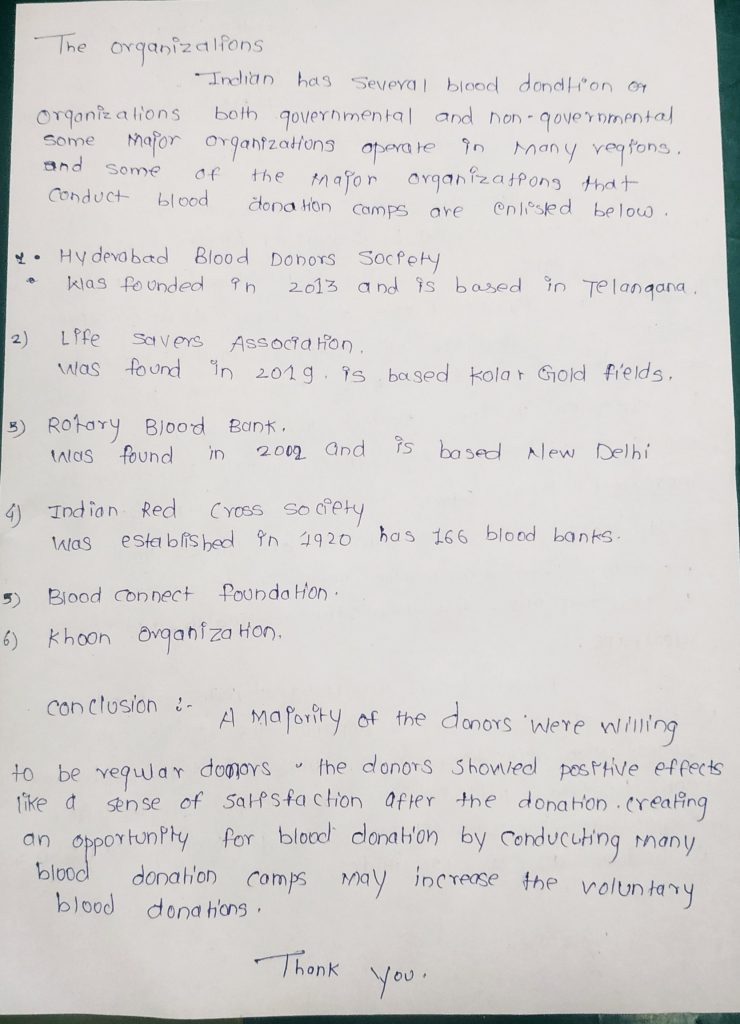 The organizations
Indian has several blood dondtion or
organizations both governmental and non-governmental
some major organizations operate in many regions.
and some of the major organizations that
conduct blood donation camps are enlisted below.
1. Hyderabad Blood Donors Society
• was founded in 2013 and is based in Telangana.
2) Life savers Association.
was found in 2019. is based kolar Gold fields.
3) Rotary Blood Bank.
was found in 2002 and is based New Delhi
4) Indian Red Cross society
was established in 1920 has 166 blood banks.
5) Blood connect foundation.
6) khoon organization.
conclusion :- A majority of the donors were willing
to be regular donors. the donors showed positive effects
like a sense of satisfaction after the donation. creating
an opportunity for blood donation by conducuting many
blood donation camps may increase the voluntary
blood donations.
Thank you.